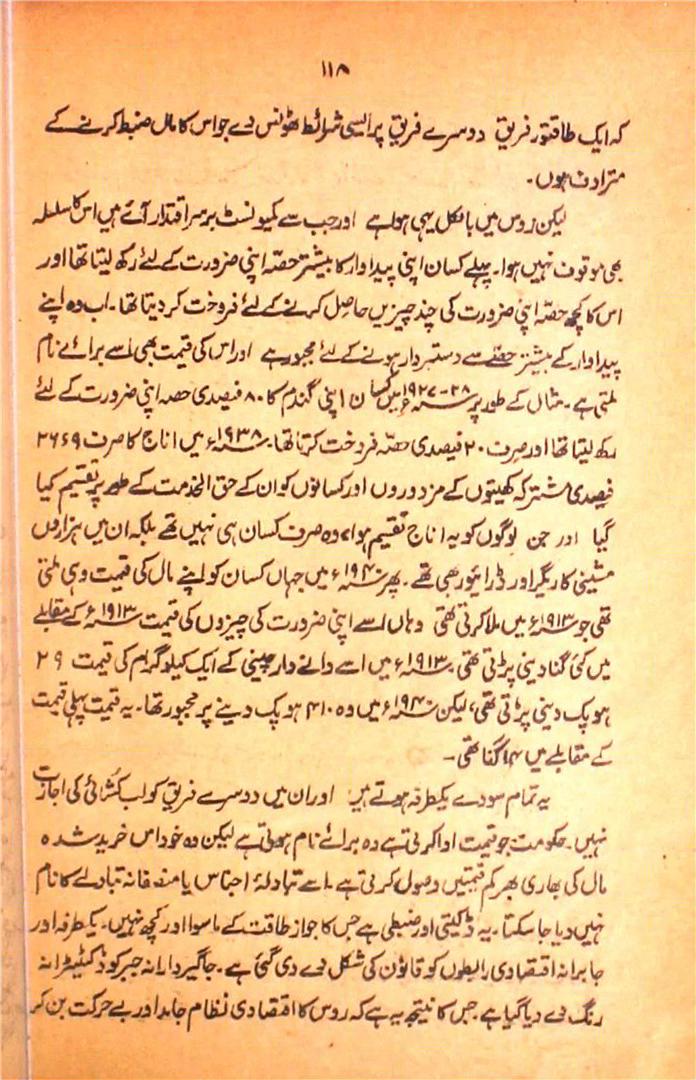 ۱۱۸
کہ ایک طاقتور فریق دوسرے فریق پر ایسی شرائط ٹھونس دے جو اس کا مال ضبط کرنے کے
مترادف ہوں۔
لیکن روس میں بالکل یہی ہوا ہے اور جب سے کمیونسٹ برسراقتدار آئے ہیں اس کا سلسلہ
بھی موقوف نہیں ہوا۔ پہلے کسان اپنی پیداوار کا بیشتر حصّہ اپنی ضرورت کے لئے رکھ لیتا تھا اور
اس کا کچھ حصّہ اپنی ضرورت کی چند چیزیں حاصل کرنے کے لئے فروخت کر دیتا تھا۔ اب وہ اپنے
پیداوار کے بیشتر حصّے سے دستبردار ہونے کے لئے مجبور ہے اور اس کی قیمت بھی اسے برائے نام
ملتی ہے۔ مثال کے طور پر ۲۸-۱۹۲۷ء میں کسان اپنی گندم کا ۸۰ فیصدی حصہ اپنی ضرورت کے لئے
رکھ لیتا تھا اور صرف ۲۰ فیصدی حصّہ فروخت کرتا تھا۔ ۱۹۳۸ء میں اناج کا صرف ۲۶ء۹
فیصدی مشترکہ کھیتوں کے مزدوروں اور کسانوں کو ان کے حق الخدمت کے طور پر تقسیم کیا
گیا اور جن لوگوں کو یہ اناج تقسیم ہوا، وہ صرف کسان ہی نہیں تھے بلکہ ان میں ہزاروں
مشینی کاریگر اور ڈرائیور بھی تھے۔ پھر ۱۹۴۰ء میں جہاں کسان کو اپنے مال کی قیمت وہی ملتی
تھی جو ۱۹۱۳ء میں ملا کرتی تھی وہاں اسے اپنی ضرورت کی چیزوں کی قیمت ۱۹۱۳ء کے مقابلے
میں کئی گنا دینی پڑتی تھی۔ ۱۹۱۳ء میں اسے دانے دار چینی کے ایک کیلوگرام کی قیمت ۲۹
ہوپک دینی پڑتی تھی، لیکن ۱۹۴۰ء میں وہ ۴۱۰ ہوپک دینے پر مجبور تھا۔ یہ قیمت پہلی قیمت
کے مقابلے میں ۱۴ گنا تھی۔
یہ تمام سودے یکطرفہ ہوتے ہیں اور ان میں دوسرے فریق کو لب کشائی کی اجازت
نہیں۔ حکومت جو قیمت ادا کرتی ہے وہ برائے نام ہوتی ہے لیکن وہ خود اس خرید شدہ
مال کی بھاری بھر کم قیمتیں وصول کرتی ہے۔ اسے تبادلۂ اجناس یا منصفانہ تبادلے کا نام
نہیں دیا جا سکتا۔ یہ ڈکیتی اور ضبطی ہے جس کا جواز طاقت کے ماسوا اور کچھ نہیں۔ یکطرفہ اور
جابرانہ اقتصادی رابطوں کو قانون کی شکل دے دی گئی ہے۔ جاگیردارانہ جبر کو ڈکٹیٹرانہ
رنگ دے دیا گیا ہے۔ جس کا نتیجہ یہ ہے کہ روس کا اقتصادی نظام جامد اور بے حرکت بن کر